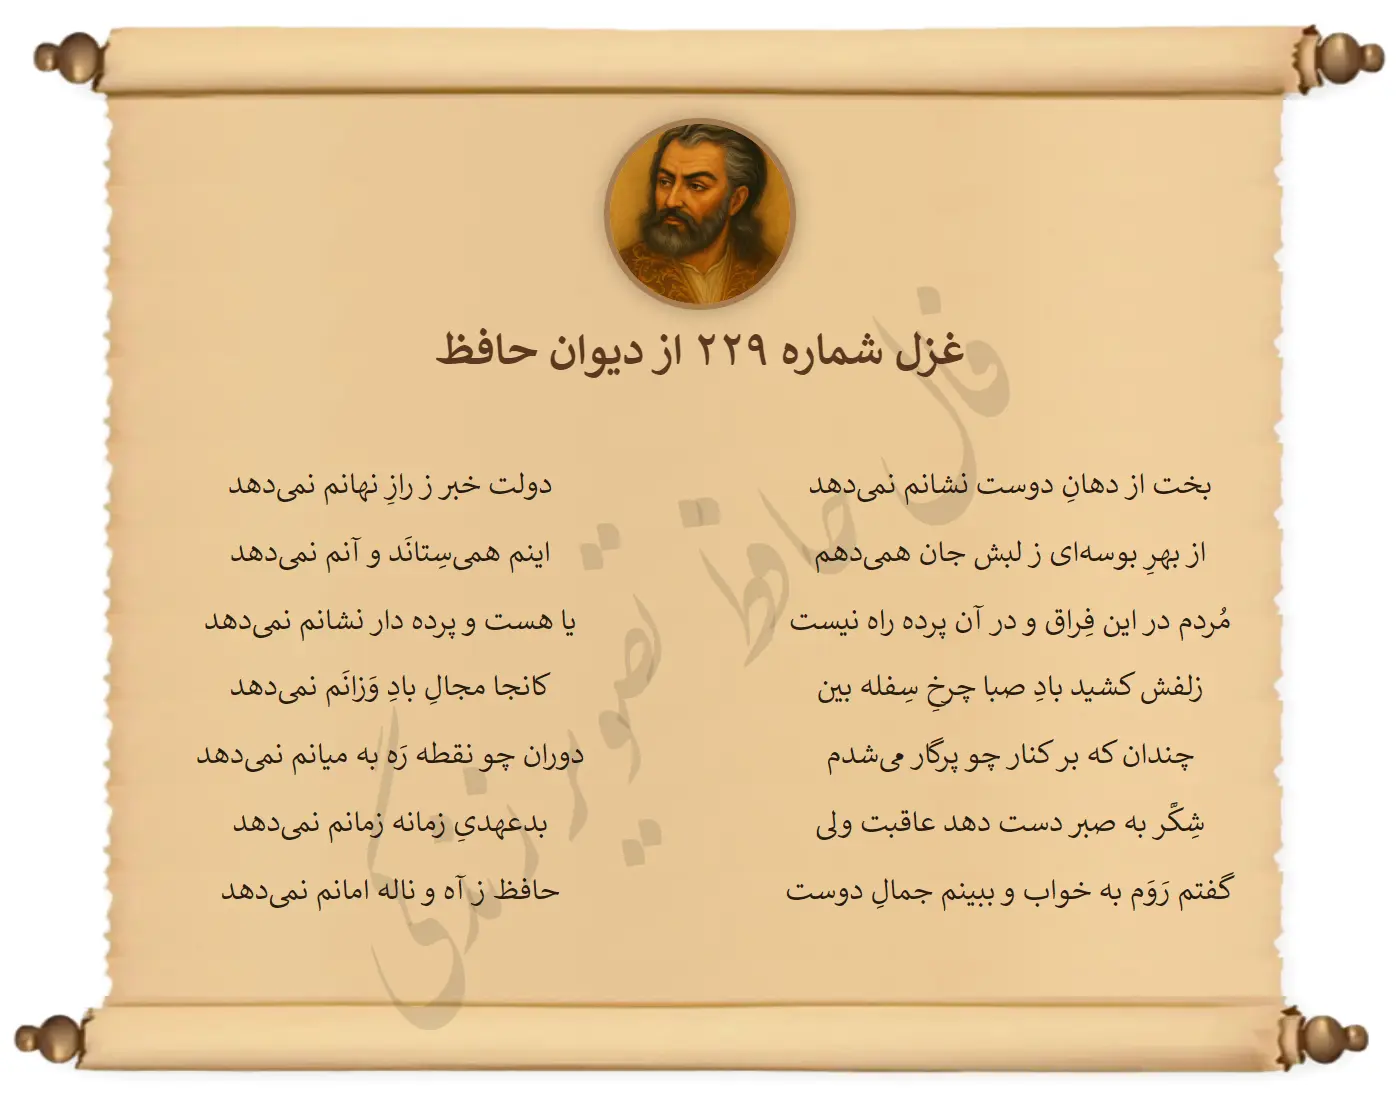 غزل شماره ۲۲۹ از دیوان حافظ
بخت از دهانِ دوست نشانم نمی‌دهد
دولت خبر ز رازِ نهانم نمی‌دهد
از بهرِ بوسه‌ای ز لبش جان همی‌دهم
اینم همی‌سِتانَد و آنم نمی‌دهد
مُردم در این فِراق و در آن پرده راه نیست
یا هست و پرده دار نشانم نمی‌دهد
زلفش کشید بادِ صبا چرخِ سِفله بین
کانجا مجالِ بادِ وَزانَم نمی‌دهد
چندان که بر کنار چو پرگار می‌شدم
دوران چو نقطه رَه به میانم نمی‌دهد
شِکَّر به صبر دست دهد عاقبت ولی
بدعهدیِ زمانه زمانم نمی‌دهد
گفتم رَوَم به خواب و ببینم جمالِ دوست
حافظ ز آه و ناله امانم نمی‌دهد
فال حافظ تصویر زندگی